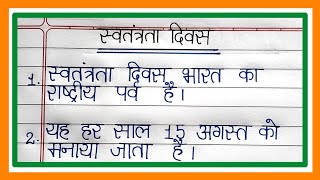 स्वतंत्रता दिवस
1. स्वतंत्रता दिवस भारत का
राष्ट्रीय पर्व है।
2. यह हर साल 15 अगस्त को
मनाया जाता है।